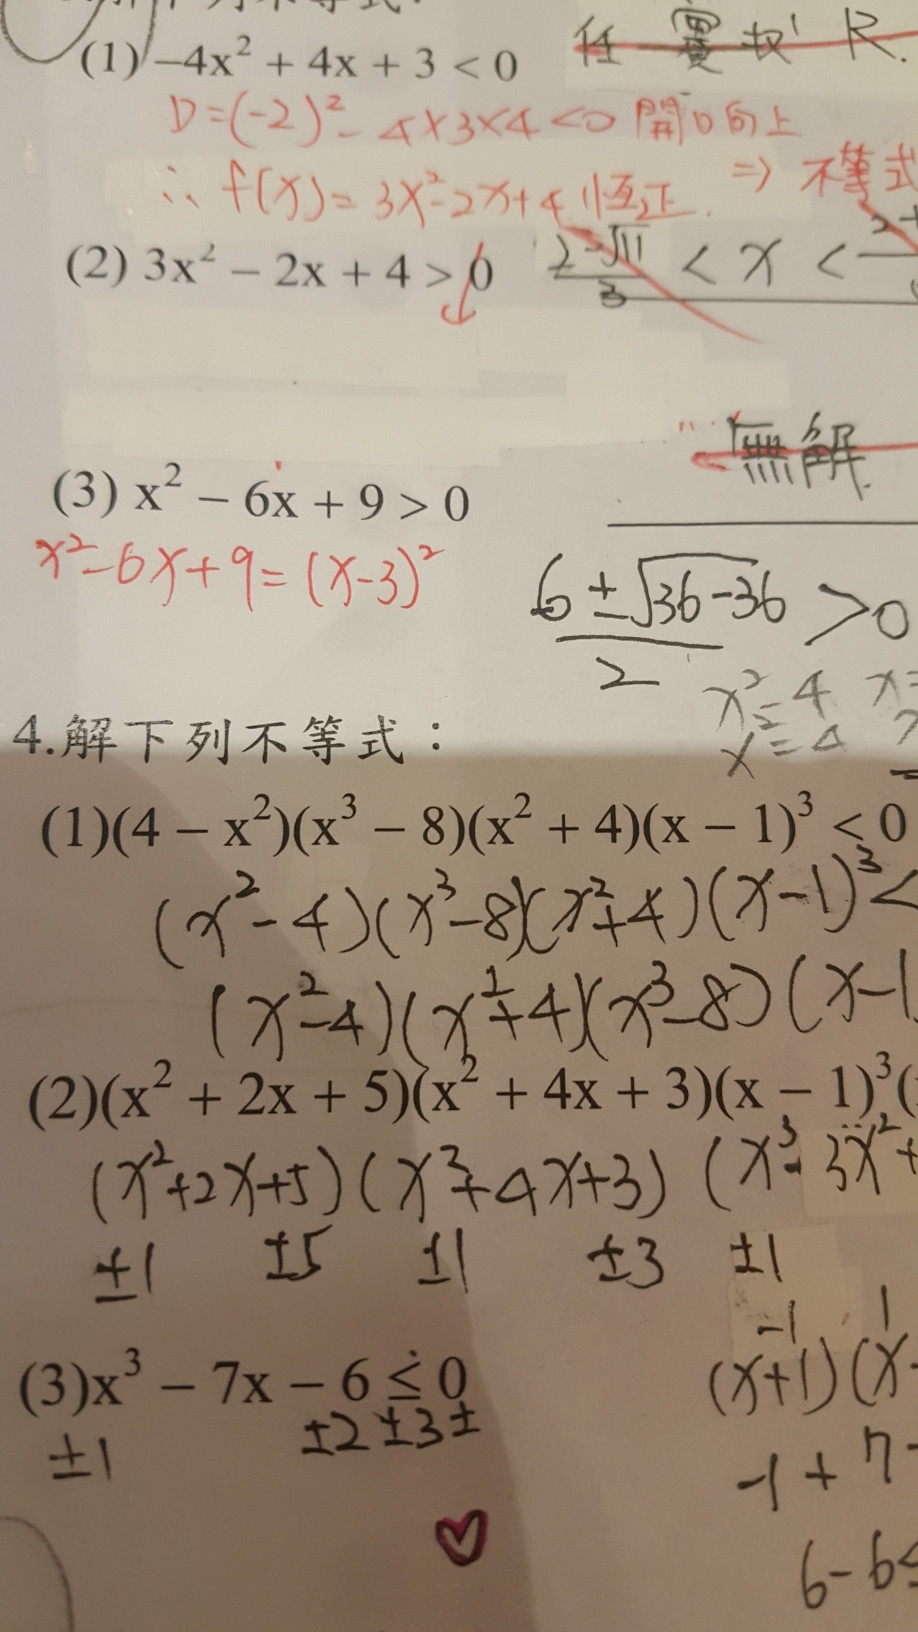 (1) -4x² + 4x + 3 < 0 任實数 R.
D=(-2)²-4×3×4<0 開口向上
∴ f(x)=3x²-2x+4 恆正. ⇒ 不等式
(2) 3x² - 2x + 4 > 0 (2-√11)/3 < x <
無解.
(3) x² - 6x + 9 > 0
x²-6x+9=(x-3)²
(6±√(36-36))/2 >0
x²=4 x=
x²=4
4.解下列不等式：
(1)(4 - x²)(x³ - 8)(x² + 4)(x - 1)³ < 0
(x²-4)(x³-8)(x²+4)(x-1)³<
(x²-4)(x²+4)(x³-8)(x-1
(2)(x² + 2x + 5)(x² + 4x + 3)(x - 1)³(
(x²+2x+5)(x²+4x+3) (x³-3x²+
±1 ±5 ±1 ±3 ±1
-1 1
(3)x³ - 7x - 6 ≤ 0 (x+1)(x-
±1 ±2 ±3 ±
-1+7-
6-6≤